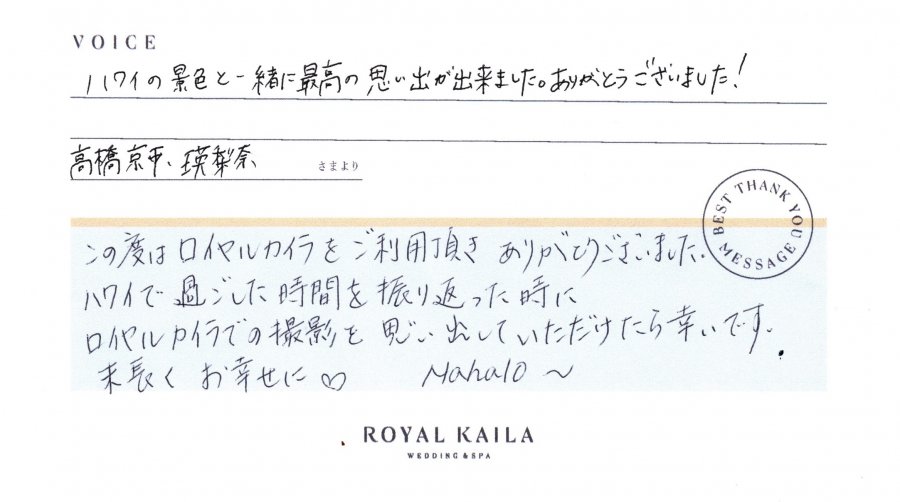 VOICE
ハワイの景色と一緒に最高の思い出が出来ました。ありがとうございました!
高橋京平、瑛梨奈 さまより
BEST THANK YOU MESSAGE
この度はロイヤルカイラをご利用頂き ありがとうございました.
ハワイで過ごした時間を振り返った時に
ロイヤルカイラでの撮影を思い出していただけたら幸いです.
末長く お幸せに♡ Mahalo ~
ROYAL KAILA
WEDDING & SPA